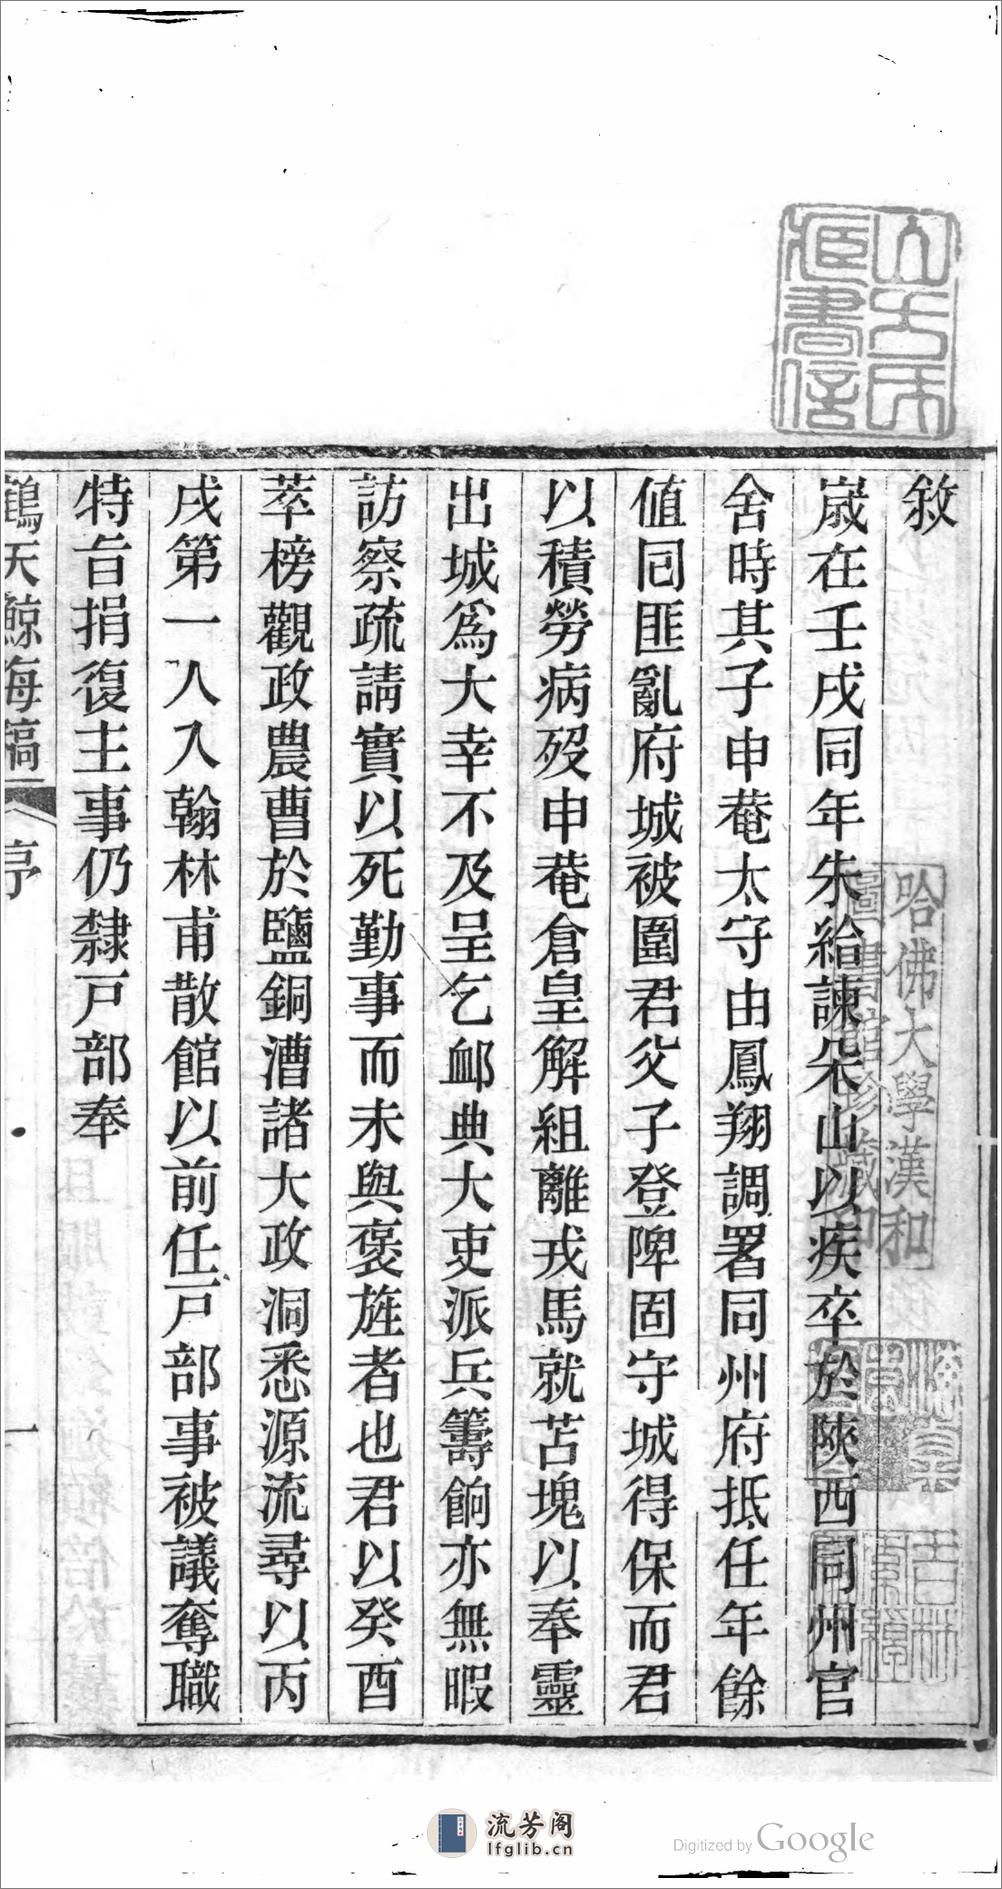 敘
嵗在壬戌同年朱給諫朵山以疾卒於陝西同州官
舍時其子申菴太守由鳳翔調署同州府抵任年餘
値囘匪亂府城被圍君父子登陴固守城得保而君
以積勞病歿申菴倉皇解組離戎馬就苫塊以奉靈
出城爲大幸不及呈乞卹典大吏派兵籌餉亦無暇
訪察疏請實以死勤事而未與褒旌者也君以癸酉
萃榜觀政農曹於鹽銅漕諸大政洞悉源流尋以丙
戌第一人入翰林甫散館以前任戸部事被議奪職
特旨捐復主事仍隸戸部奉
鶴天鯨海稿 序 一
哈佛大學漢和
圖書館珍藏印
流芳阁
lfglib.cn
Digitized by Google